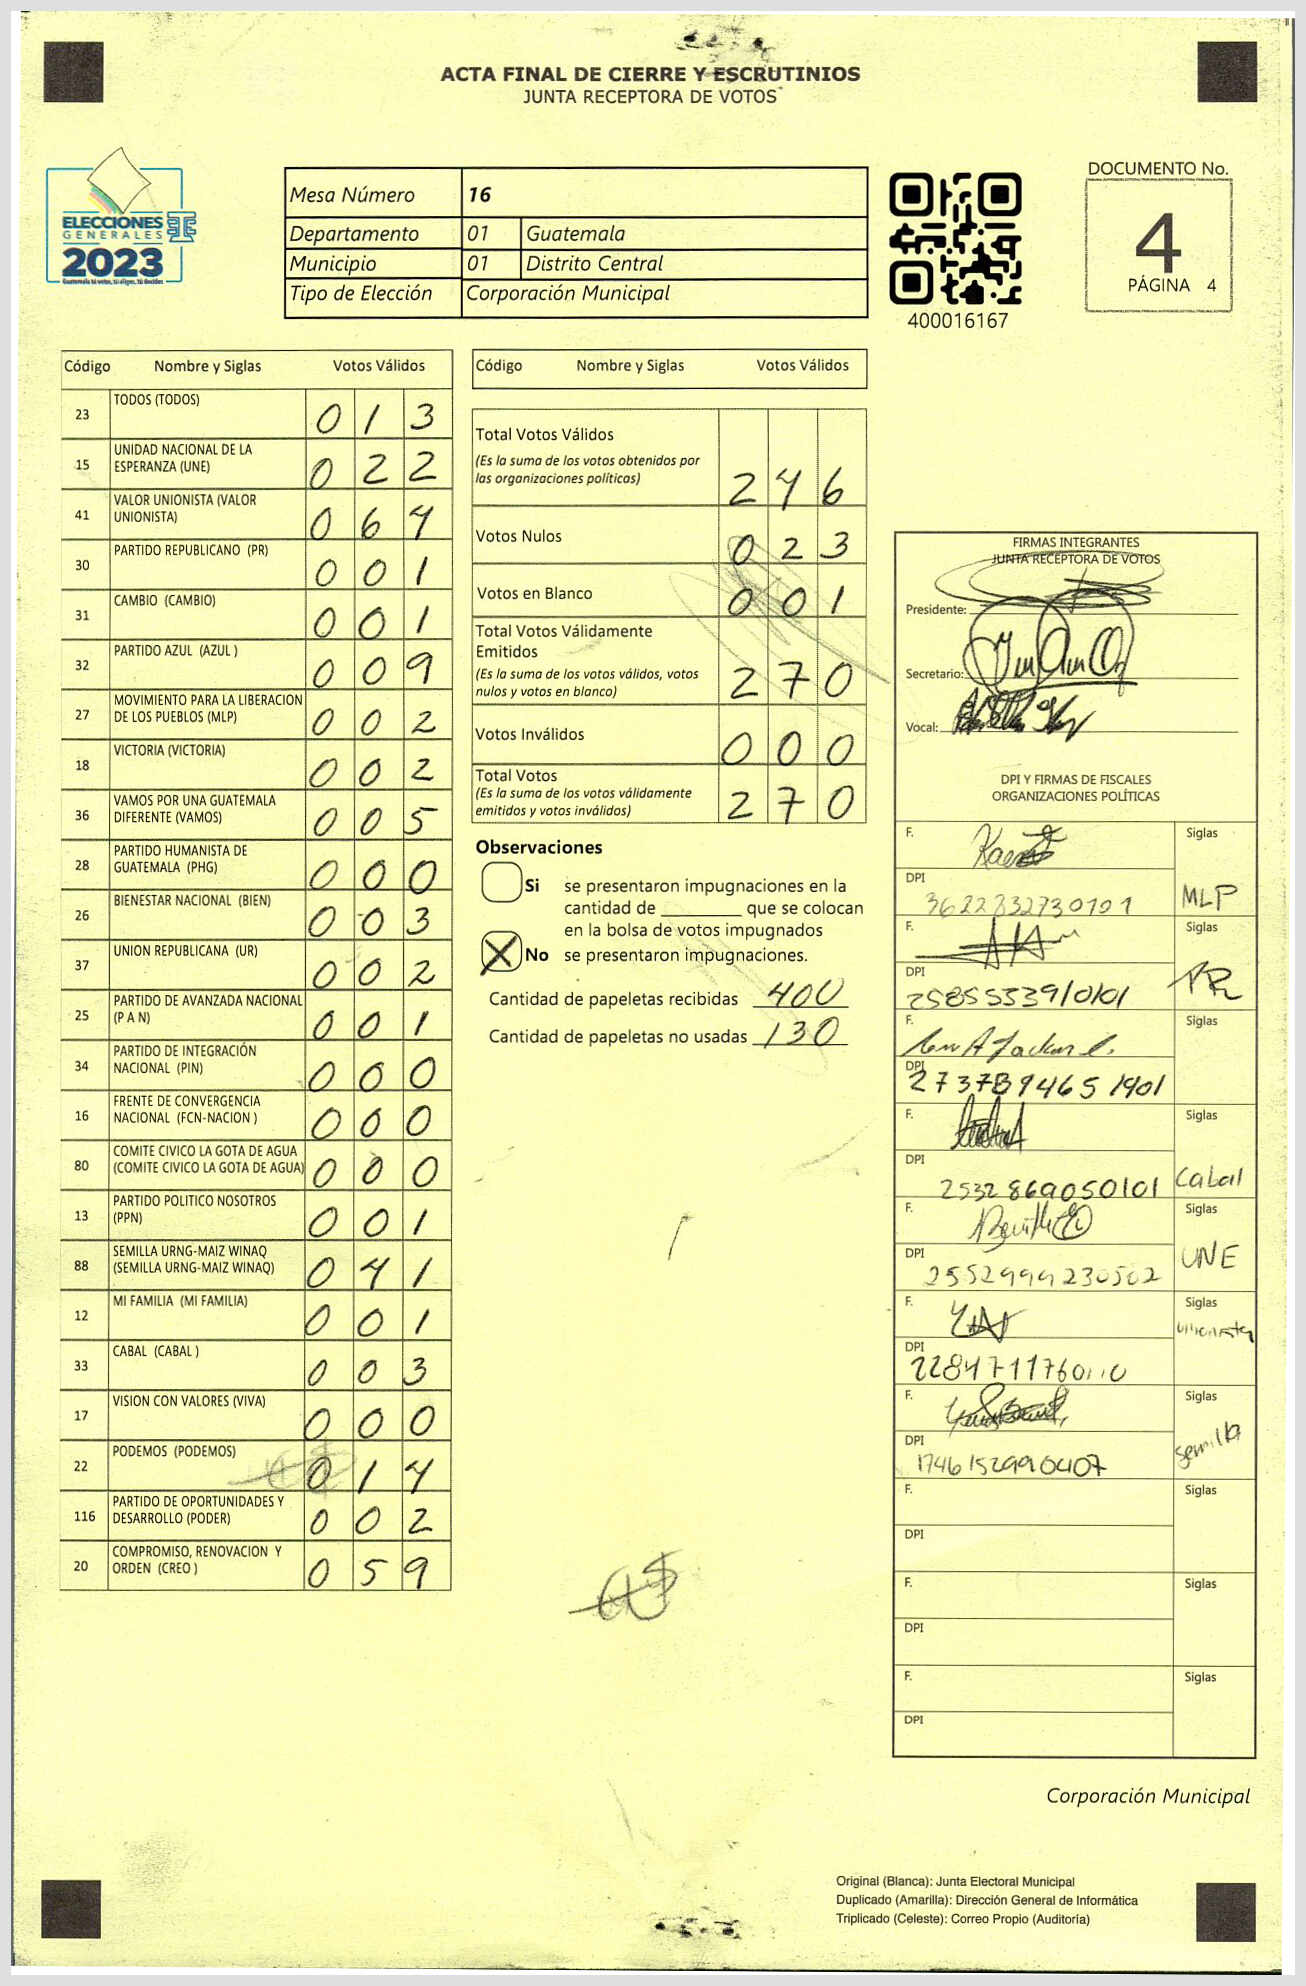 ACTA FINAL DE CIERRE Y ESCRUTINIOS
JUNTA RECEPTORA DE VOTOS
ELECCIONES
GENERALES
2023
Guatemala tú votes, tú eliges, tú decides
Mesa Número 16
Departamento 01 Guatemala
Municipio 01 Distrito Central
Tipo de Elección Corporación Municipal
400016167
DOCUMENTO No.
4
PÁGINA 4
Código Nombre y Siglas Votos Válidos
23 TODOS (TODOS) 0 1 3
15 UNIDAD NACIONAL DE LA
ESPERANZA (UNE) 0 2 2
41 VALOR UNIONISTA (VALOR
UNIONISTA) 0 6 4
30 PARTIDO REPUBLICANO (PR) 0 0 1
31 CAMBIO (CAMBIO) 0 0 1
32 PARTIDO AZUL (AZUL ) 0 0 9
27 MOVIMIENTO PARA LA LIBERACION
DE LOS PUEBLOS (MLP) 0 0 2
18 VICTORIA (VICTORIA) 0 0 2
36 VAMOS POR UNA GUATEMALA
DIFERENTE (VAMOS) 0 0 5
28 PARTIDO HUMANISTA DE
GUATEMALA (PHG) 0 0 0
26 BIENESTAR NACIONAL (BIEN) 0 0 3
37 UNION REPUBLICANA (UR) 0 0 2
25 PARTIDO DE AVANZADA NACIONAL
(P A N) 0 0 1
34 PARTIDO DE INTEGRACIÓN
NACIONAL (PIN) 0 0 0
16 FRENTE DE CONVERGENCIA
NACIONAL (FCN-NACION ) 0 0 0
80 COMITE CIVICO LA GOTA DE AGUA
(COMITE CIVICO LA GOTA DE AGUA) 0 0 0
13 PARTIDO POLITICO NOSOTROS
(PPN) 0 0 1
88 SEMILLA URNG-MAIZ WINAQ
(SEMILLA URNG-MAIZ WINAQ) 0 4 1
12 MI FAMILIA (MI FAMILIA) 0 0 1
33 CABAL (CABAL ) 0 0 3
17 VISION CON VALORES (VIVA) 0 0 0
22 PODEMOS (PODEMOS) 0 1 4
116 PARTIDO DE OPORTUNIDADES Y
DESARROLLO (PODER) 0 0 2
20 COMPROMISO, RENOVACION Y
ORDEN (CREO ) 0 5 9
Código Nombre y Siglas Votos Válidos
Total Votos Válidos
(Es la suma de los votos obtenidos por
las organizaciones políticas) 2 4 6
Votos Nulos 0 2 3
Votos en Blanco 0 0 1
Total Votos Válidamente
Emitidos
(Es la suma de los votos válidos, votos
nulos y votos en blanco) 2 7 0
Votos Inválidos 0 0 0
Total Votos
(Es la suma de los votos válidamente
emitidos y votos inválidos) 2 7 0
Observaciones
Si se presentaron impugnaciones en la
cantidad de ________ que se colocan
en la bolsa de votos impugnados
X No se presentaron impugnaciones.
Cantidad de papeletas recibidas 400
Cantidad de papeletas no usadas 130
FIRMAS INTEGRANTES
JUNTA RECEPTORA DE VOTOS
Presidente:
Secretario:
Vocal:
DPI Y FIRMAS DE FISCALES
ORGANIZACIONES POLÍTICAS
F. Siglas
DPI MLP
3622832730101
F. Siglas
DPI PR
2585533910101
F. Siglas
DPI
2737894651901
F. Siglas
DPI
2532869050101 Cabal
F. Siglas
DPI UNE
2552999230502
F. Siglas
unionista
DPI
F. Siglas
DPI semilla
1746152990407
F. Siglas
DPI
F. Siglas
DPI
F. Siglas
DPI
Corporación Municipal
Original (Blanca): Junta Electoral Municipal
Duplicado (Amarilla): Dirección General de Informática
Triplicado (Celeste): Correo Propio (Auditoría)